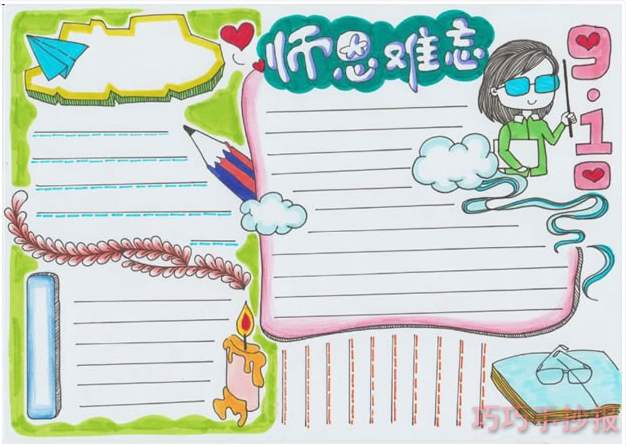 师恩难忘
9.10
巧巧手抄报